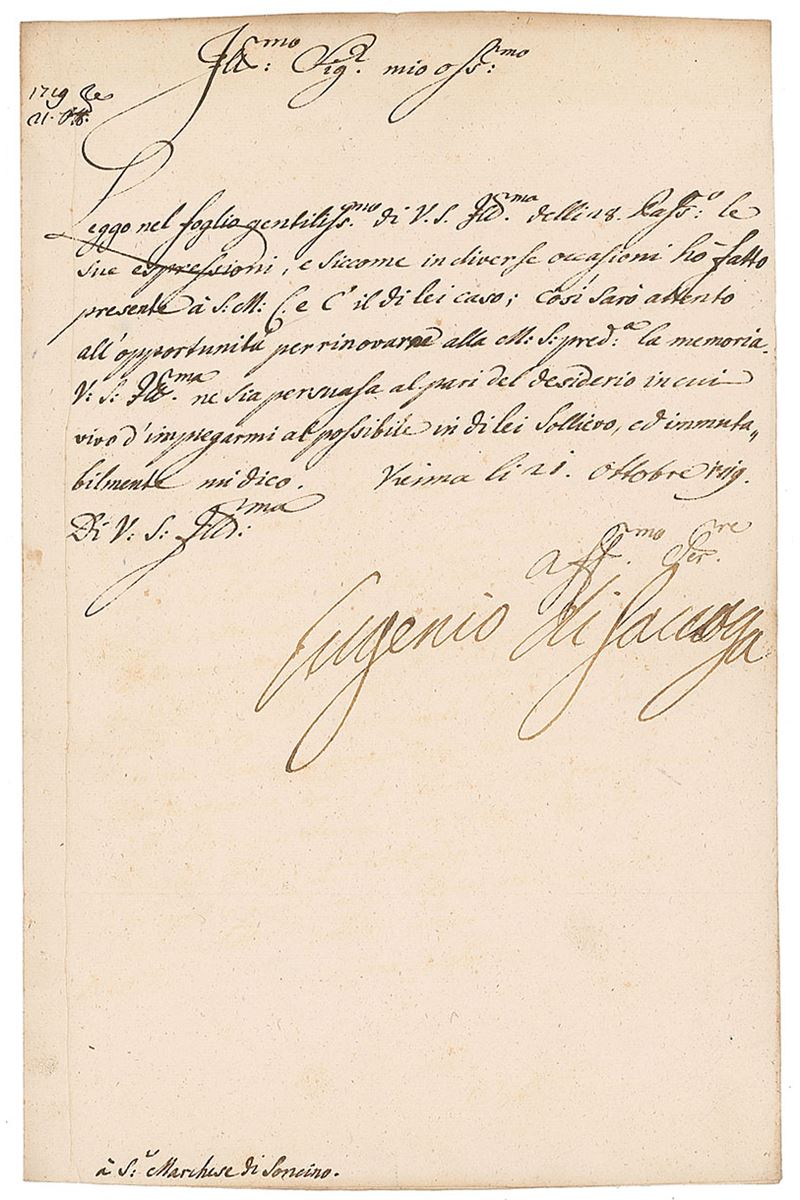 Ill:mo Sig.r mio oss:mo
1719
21. Ott.
Leggo nel foglio gentiliss.mo di V. S. Ill.ma delli 28. Pass:o le
sue espressioni, e siccome in diverse occasioni hò fatto
presente à S: M: C. e C. il di lei caso; così sarò attento
all'opportunità per rinovarne alla M: S: pred.a la memoria.
V: S: Ill.ma ne sia persuasa al pari del desiderio in cui
vivo d'impiegarmi al possibile in di lei sollievo, ed immuta„
bilmente mi dico. Vienna li 21. Ottobre 1719.
Di V: S: Ill:ma
aff.mo Ser.re
Eugenio di Savoya
à S:r Marchese di Soncino.